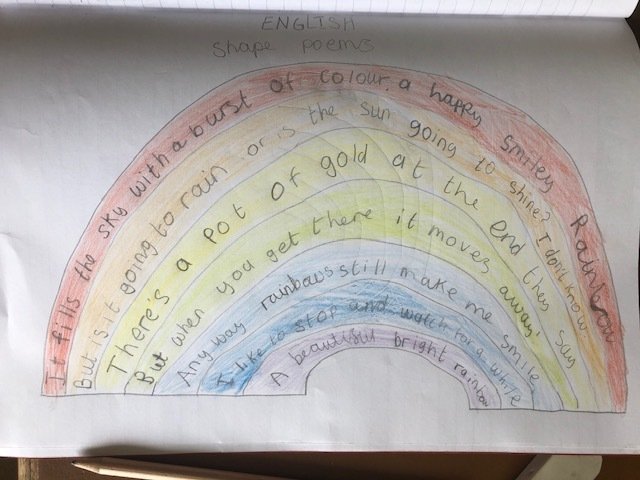 ENGLISH
shape poems
It fills the sky with a burst of colour. a happy smiley Rainbow
But is it going to rain or is the sun going to shine? I don't know.
There's a pot of gold at the end they say
But when you get there it moves away!
Any way rainbows still make me smile
I like to stop and watch for a while
A beautiful bright rainbow